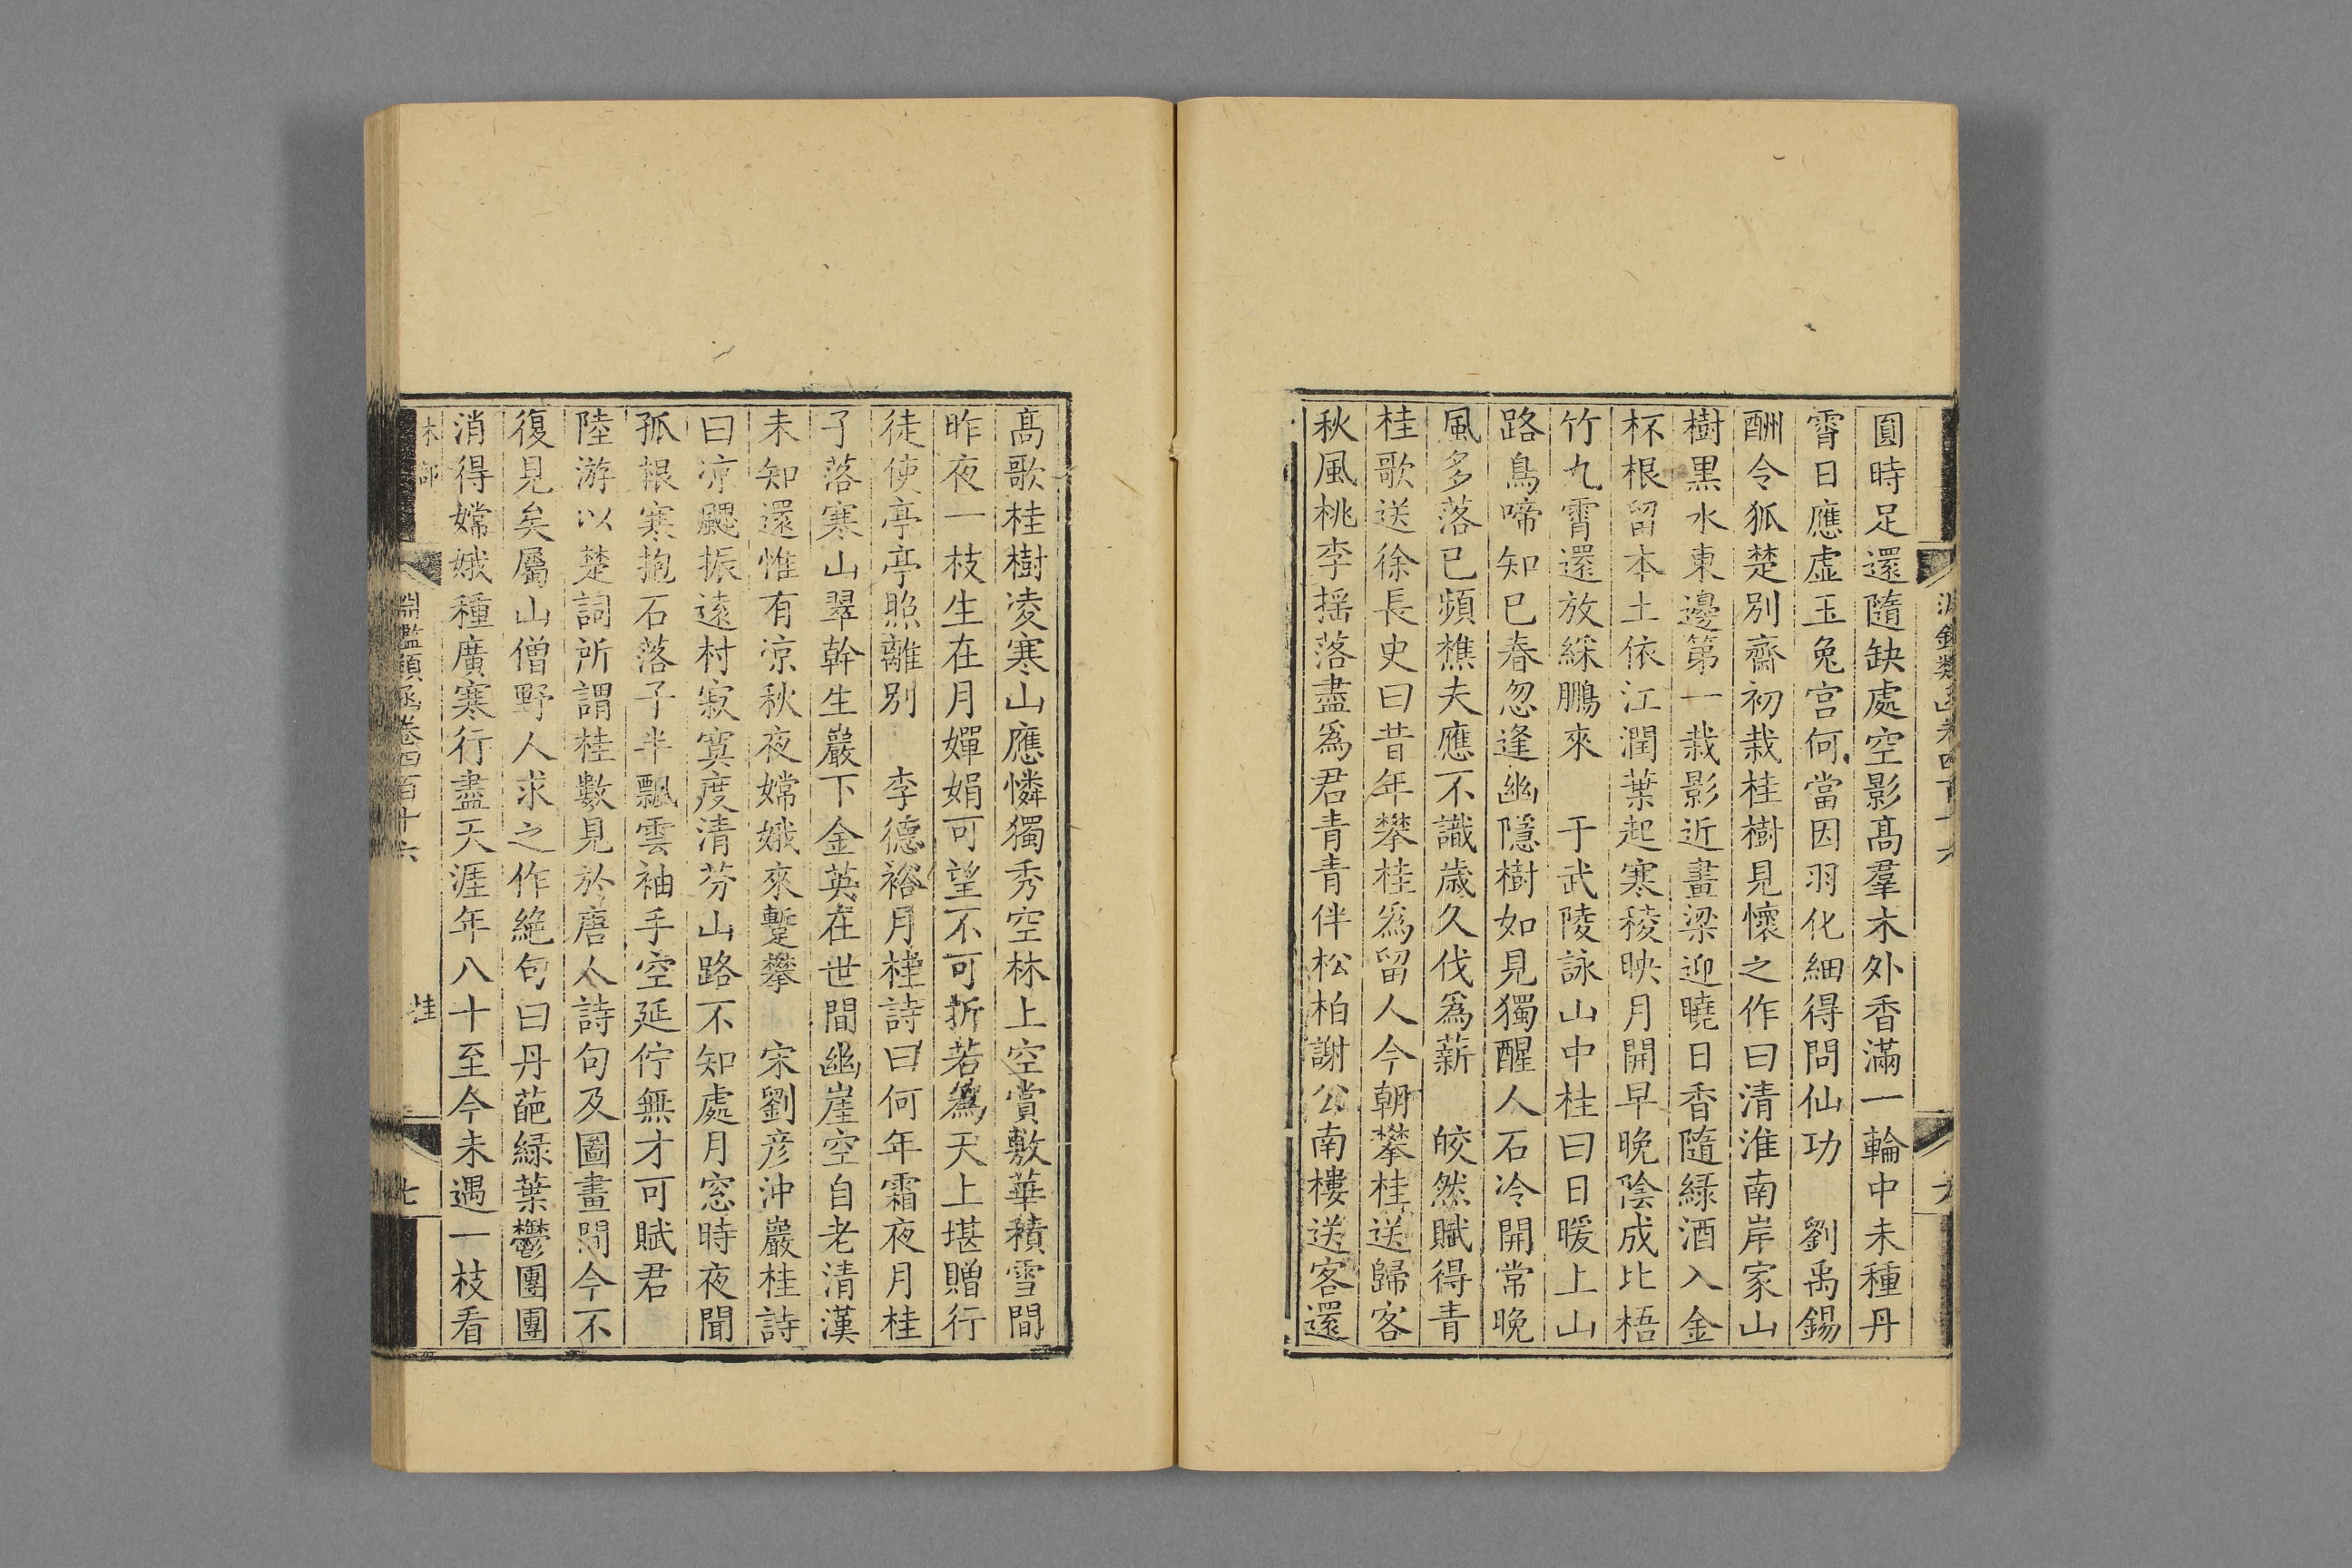 圓時足還隨缺處空影髙羣木外香滿一輪中未種丹
霄日應虛玉兔宫何當因羽化細得問仙功　劉禹錫
酬令狐楚別齋初栽桂樹見懷之作曰清淮南岸家山
樹黒水東邊第一栽影近畫梁迎曉日香隨緑酒入金
杯根留本土依江潤葉起寒稜映月開早晚陰成比梧
竹九霄還放綵鵬來　于武陵詠山中桂曰日暖上山
路鳥啼知已春忽逢幽隱樹如見獨醒人石冷開常晚
風多落已頻樵夫應不識歲久伐爲薪　皎然賦得青
桂歌送徐長史曰昔年攀桂爲留人今朝攀桂送歸客
秋風桃李揺落盡爲君青青伴松柏謝公南樓送客還
髙歌桂樹凌寒山應憐獨秀空林上空賞敷華積雪間
昨夜一枝生在月嬋娟可望不可折若爲天上堪贈行
徒使亭亭照離別　李德裕月桂詩曰何年霜夜月桂
子落寒山翠幹生巖下金英在世間幽崖空自老清漢
未知還惟有凉秋夜嫦娥來蹔攀　宋劉彦沖巖桂詩
曰凉颸振遠村寂寞度清芬山路不知處月窓時夜聞
孤根寒抱石落子半飄雲袖手空延佇無才可賦君
陸游以楚詞所謂桂數見於唐人詩句及圖畫間今不
復見矣屬山僧野人求之作絶句曰丹葩緑葉鬱團團
消得嫦娥種廣寒行盡天涯年八十至今未遇一枝看
木部
淵鑑類函卷四百十六
桂
七